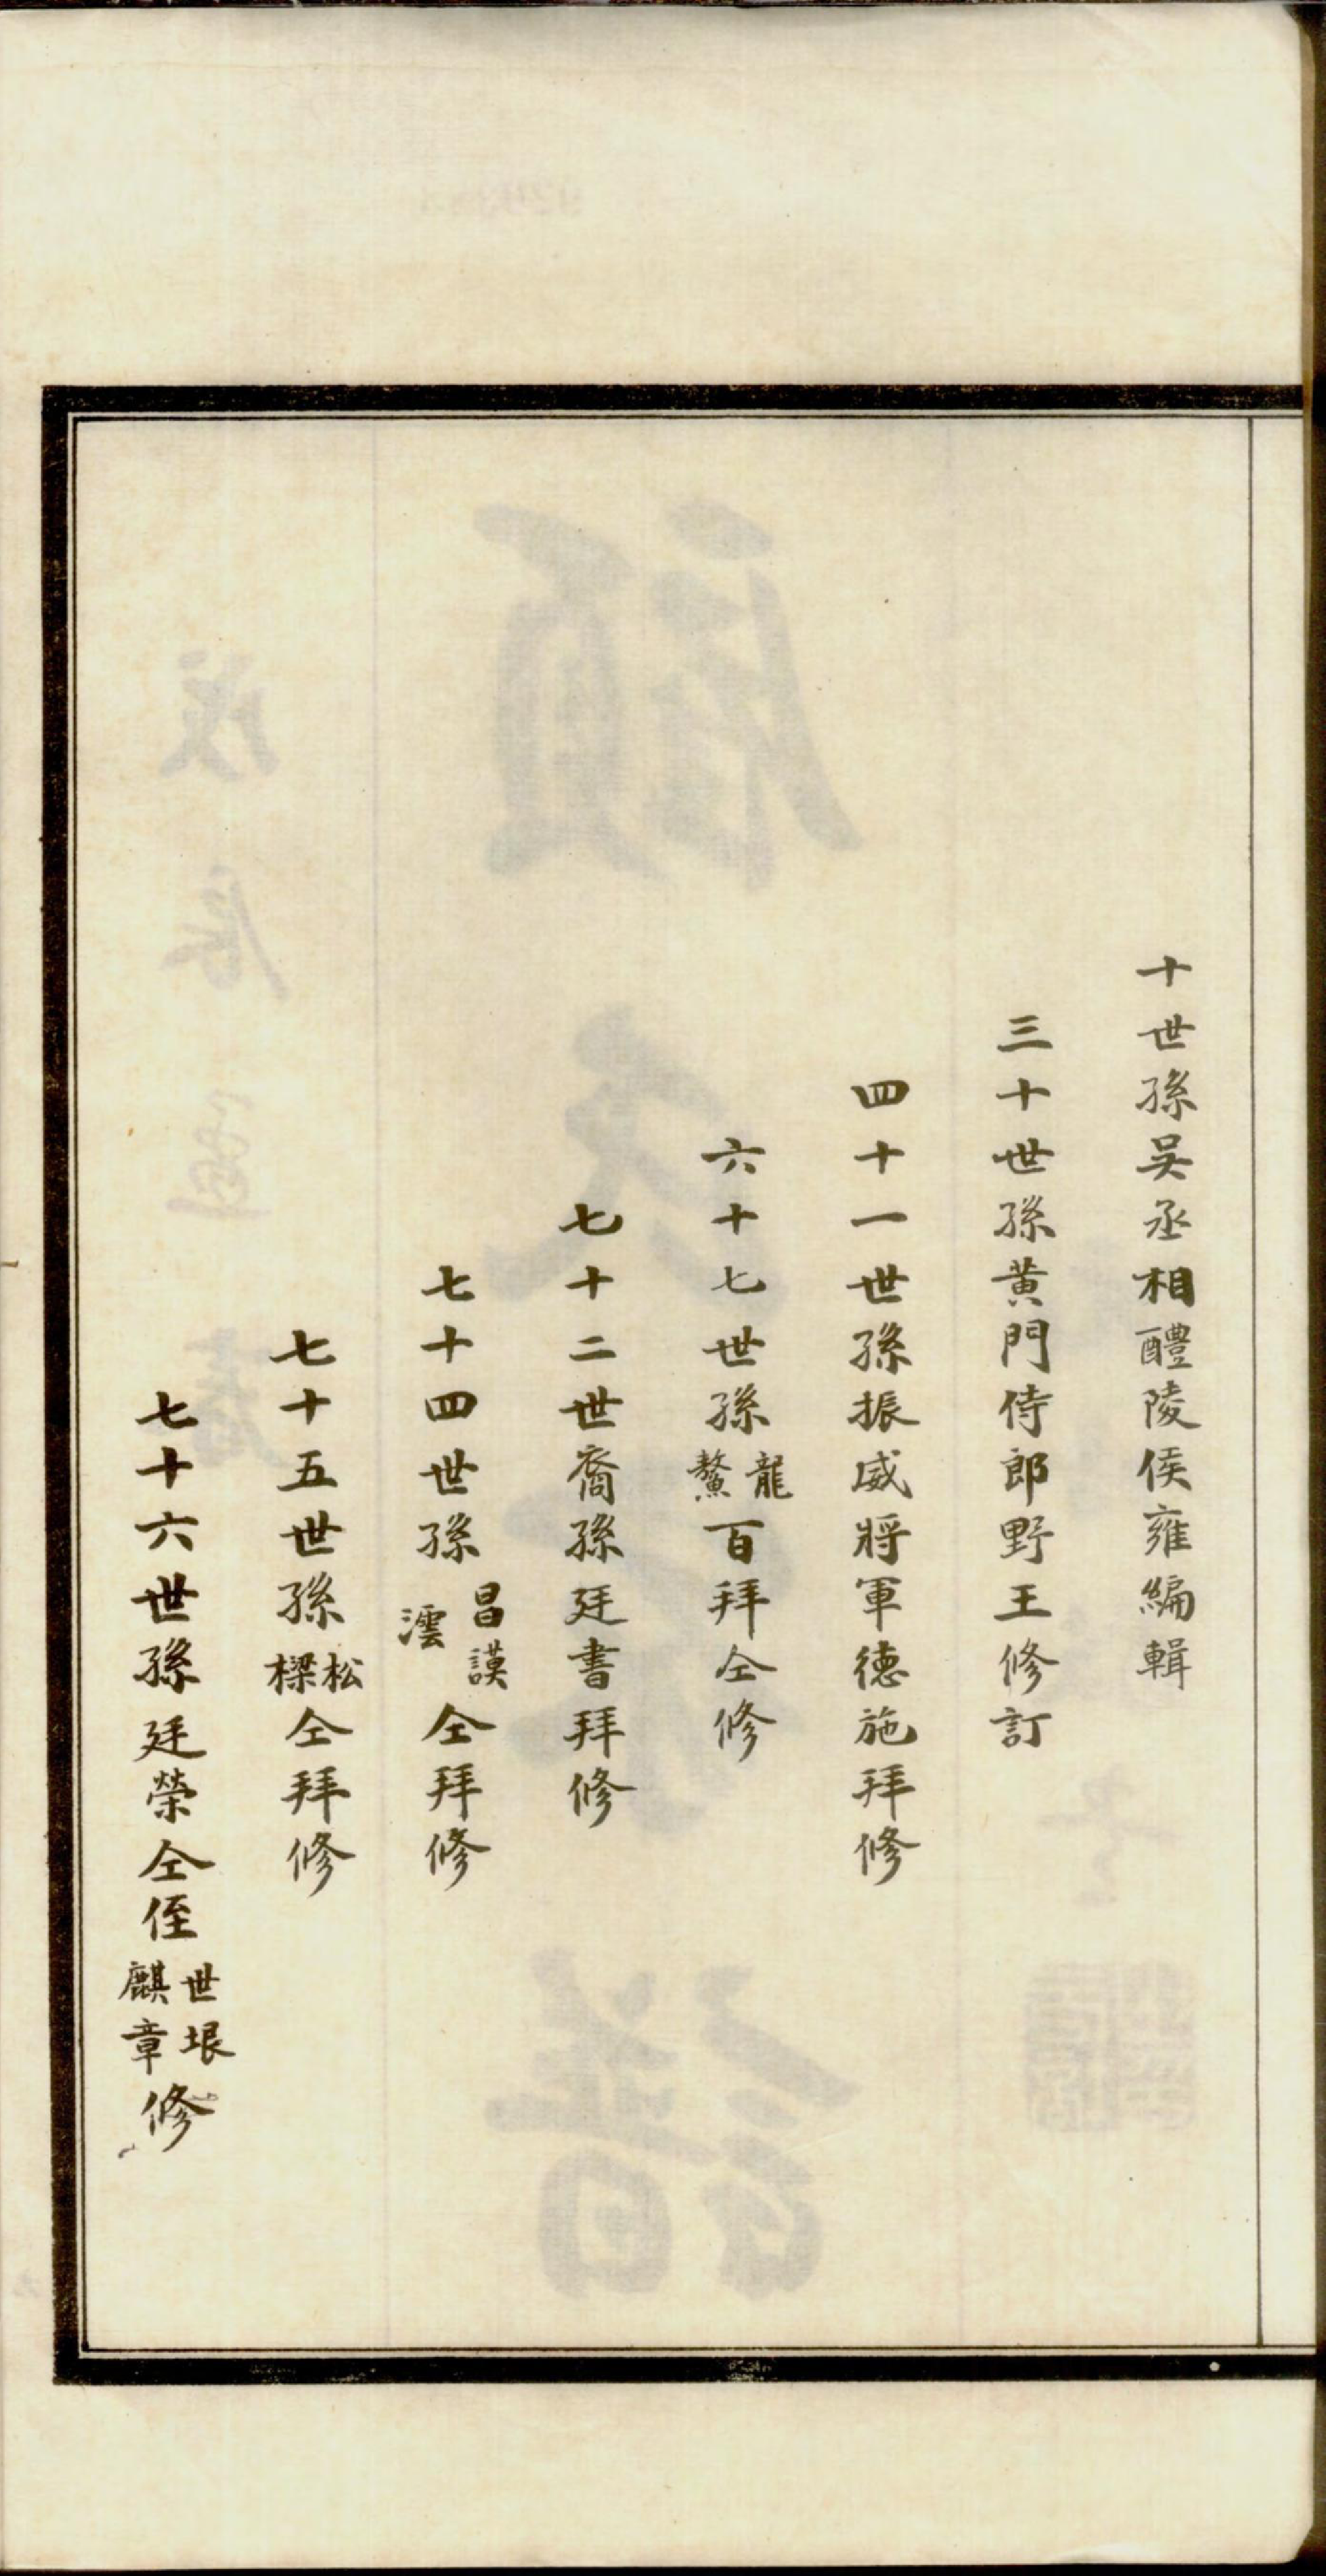 十世孫吴丞相醴陵侯雍編輯
三十世孫黄門侍郎野王修訂
四十一世孫振威將軍德施拜修
六十七世孫龍鰲百拜仝修
七十二世裔孫廷書拜修
七十四世孫昌謨澐仝拜修
七十五世孫松樑仝拜修
七十六世孫廷榮仝侄世垠麒章修